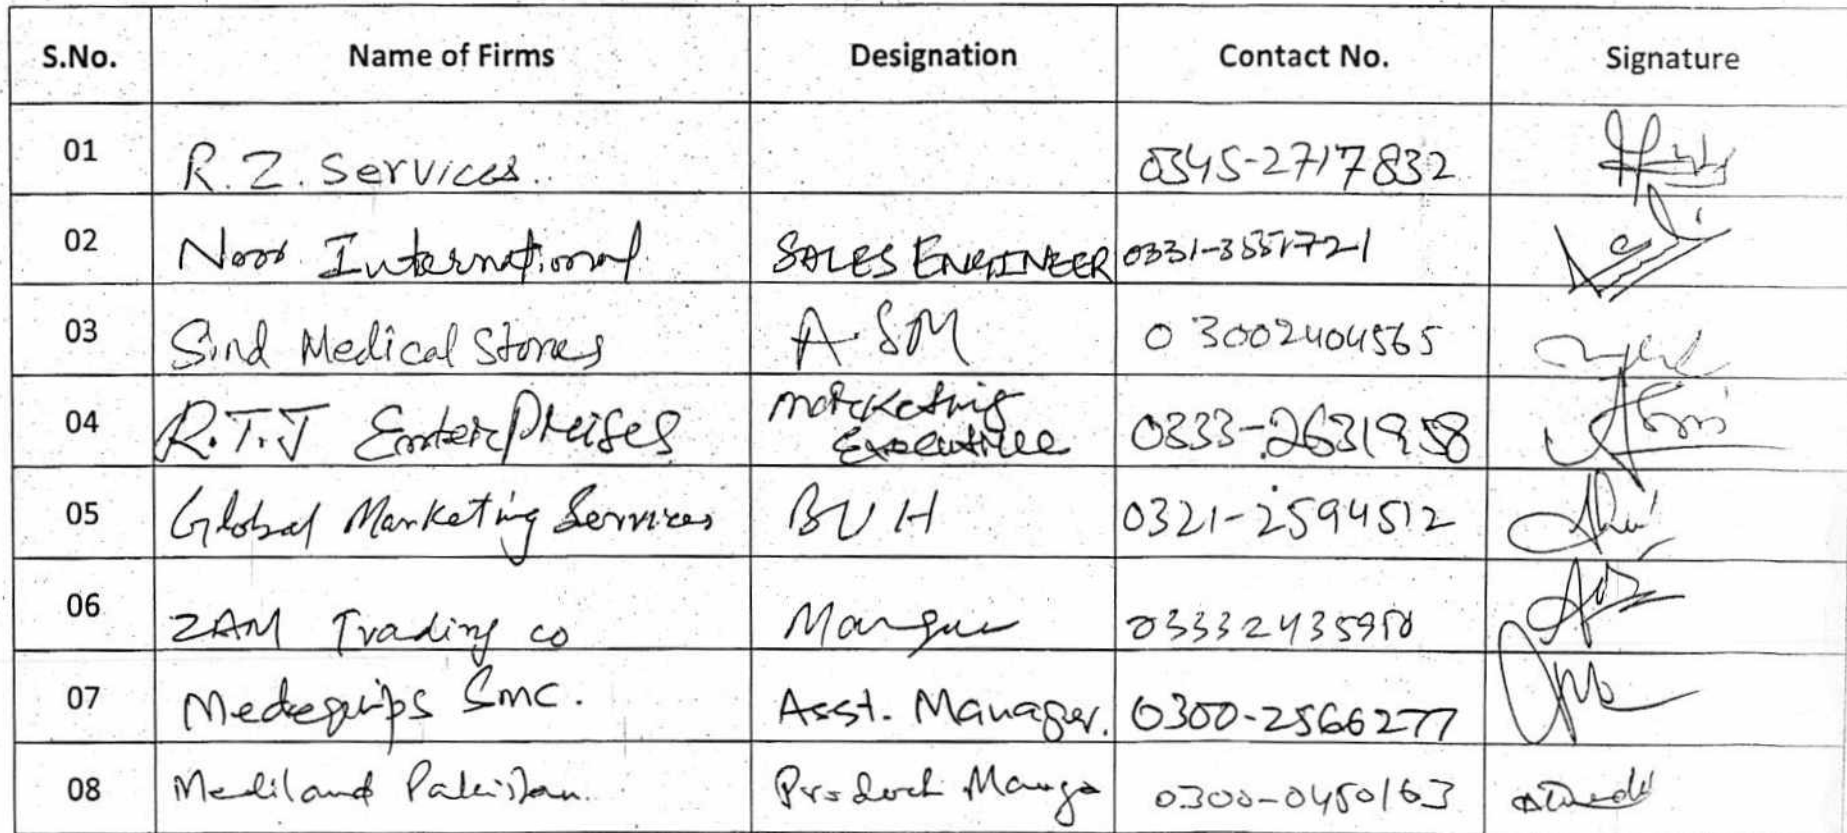 S.No. Name of Firms Designation Contact No. Signature
01 R.Z. Services. 0345-2717832
02 Noor International SALES ENGINEER 0331-3551721
03 Sind Medical Stores A.SM 0 3002404565
04 R.T.J Enterprises Marketing
Executive 0333-2631958
05 Global Marketing Services BUH 0321-2594512
06 ZAM Trading co Manager
07 Medequips Smc. Asst. Manager. 0300-2566277
08 Mediland Pakistan. Product Manager 0300-0450163